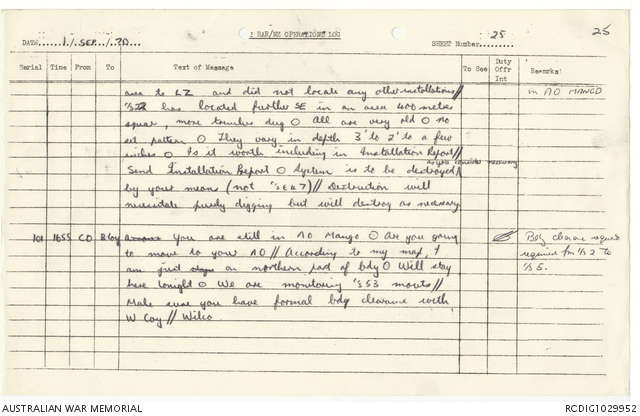 2 RAR/NZ OPERATIONS LOG
25
DATE 1/ SEP /70
SHEET Number 25
Serial Time From To Text of Message To See Duty Offr Int Remarks
area to LZ and did not locate any other installations // in AO MANGO
has located further SE in an area 400 metres
square, more trenches dug O All are very old O no
set pattern O They vary in depth 3' to 2' to a few
inches O Is it worth including in Installation Report //
Send Installation Report O System is to be destroyed
by your means (not ) // Destruction will
necessitate purely digging but will destroy as necessary
101 1655 CO You are still in AO Mango O Are you going Bdy clearance
to move to your AO // According to my map, I required for 1/S 2 to
am just on northern part of bdy O Will stay
here tonight O We are monitoring //
Make sure you have formal bdy clearance with
W Coy // Wilco
AUSTRALIAN WAR MEMORIAL
RCDIG1029952